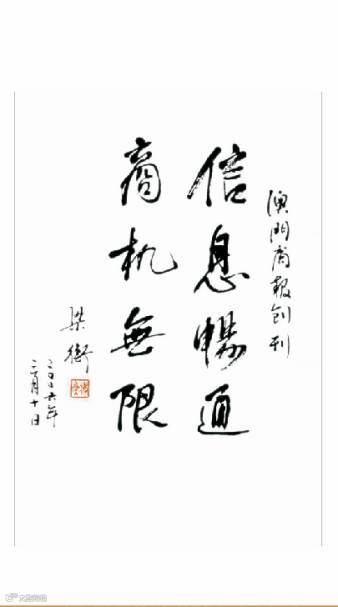 澳門商報創刊
信息暢通
商机無限
梁衡
二〇〇六年
三月十日